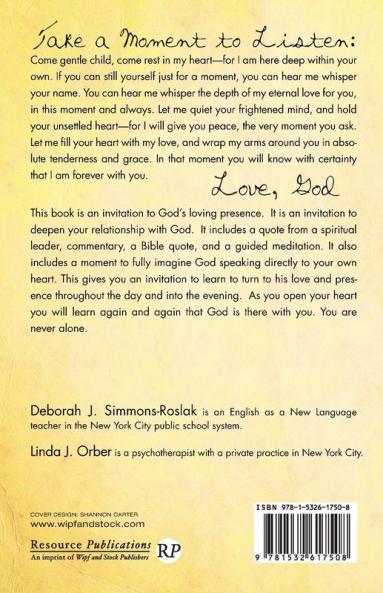 Take a Moment to Listen:
Come gentle child, come rest in my heart—for I am here deep within your
own. If you can still yourself just for a moment, you can hear me whisper
your name. You can hear me whisper the depth of my eternal love for you,
in this moment and always. Let me quiet your frightened mind, and hold
your unsettled heart—for I will give you peace, the very moment you ask.
Let me fill your heart with my love, and wrap my arms around you in abso-
lute tenderness and grace. In that moment you will know with certainty
that I am forever with you.
Love, God
This book is an invitation to God's loving presence. It is an invitation to
deepen your relationship with God. It includes a quote from a spiritual
leader, commentary, a Bible quote, and a guided meditation. It also
includes a moment to fully imagine God speaking directly to your own
heart. This gives you an invitation to learn to turn to his love and pres-
ence throughout the day and into the evening. As you open your heart
you will learn again and again that God is there with you. You are
never alone.
Deborah J. Simmons-Roslak is an English as a New Language
teacher in the New York City public school system.
Linda J. Orber is a psychotherapist with a private practice in New York City.
COVER DESIGN: SHANNON CARTER
www.wipfandstock.com
Resource Publications
An imprint of Wipf and Stock Publishers
RP
ISBN 978-1-5326-1750-8
9 781532 617508